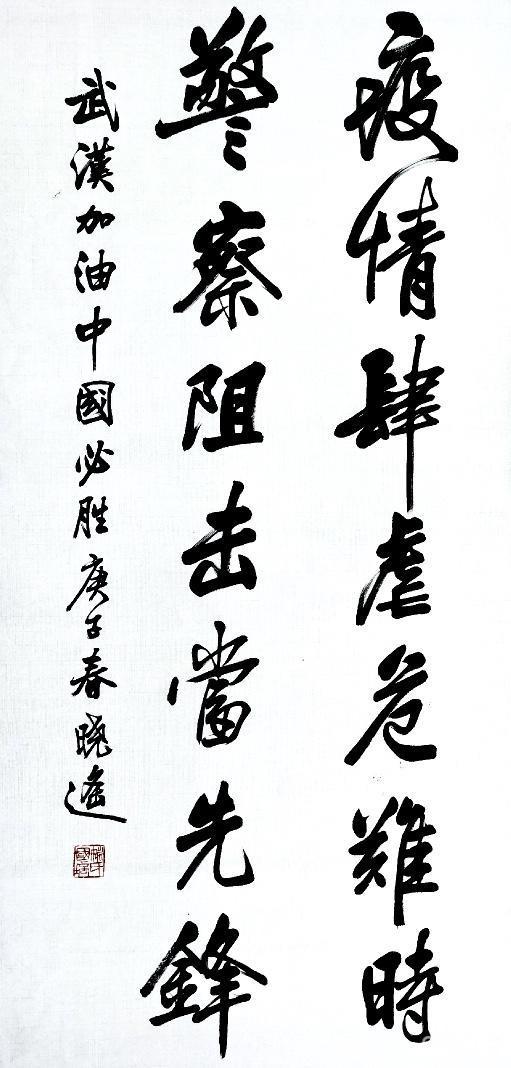 疫情肆虐危難時
警察阻击當先鋒
武漢加油中國必胜庚子春晓遥